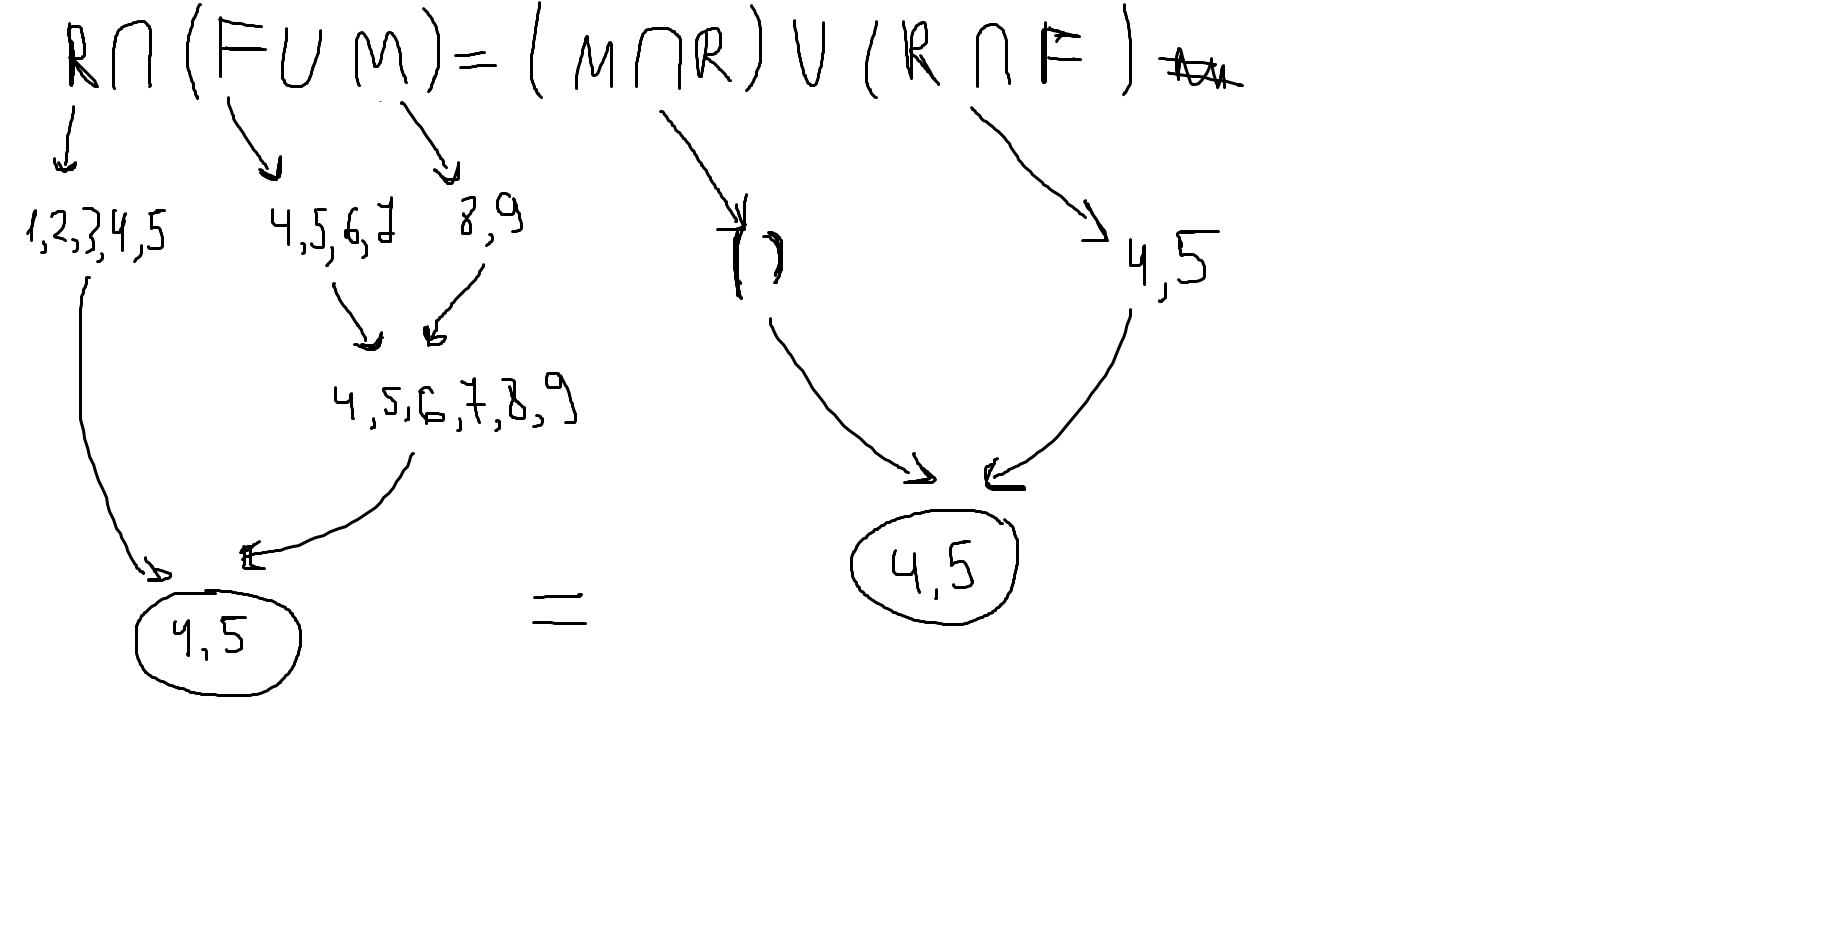 R∩(F∪M)=(M∩R)∪(R∩F)
1,2,3,4,5 4,5,6,7 8,9
() 4,5
4,5,6,7,8,9
4,5
= 4,5